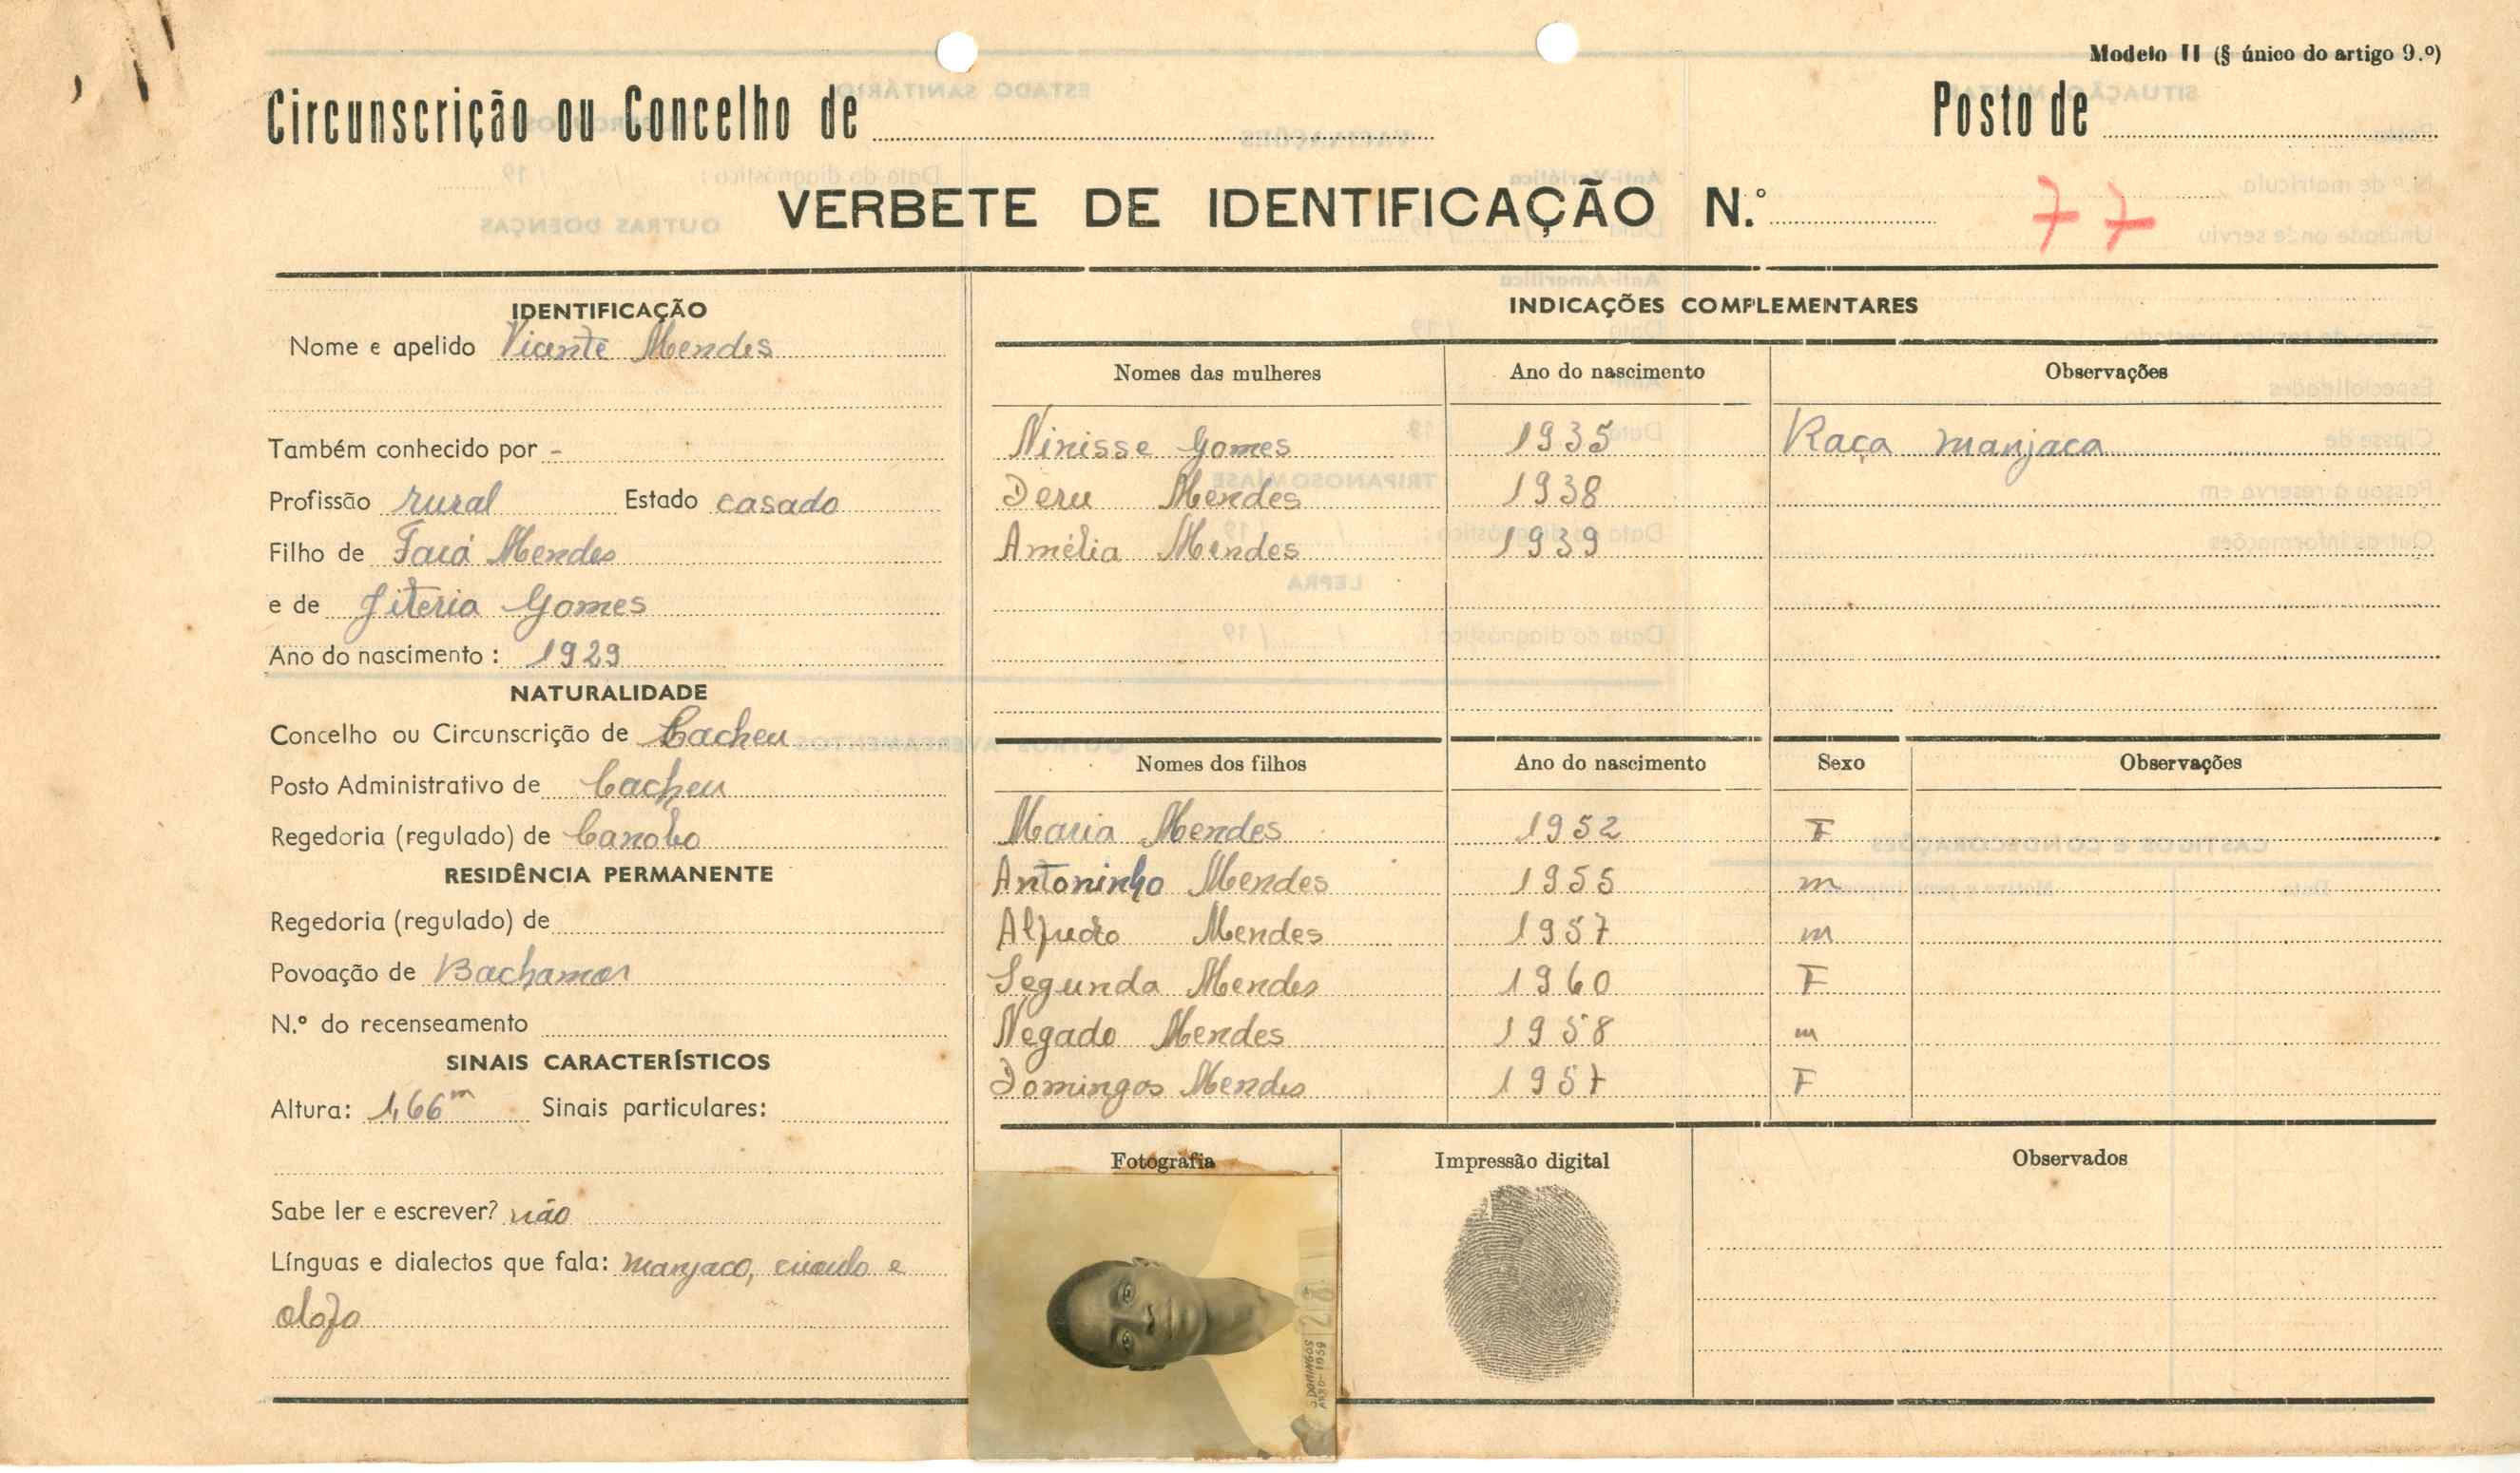 Modelo II (§ único do artigo 9.º)
Circunscrição ou Concelho de
Posto de
VERBETE DE IDENTIFICAÇÃO N.º
77
IDENTIFICAÇÃO
Nome e apelido Vicente Mendes
Também conhecido por -
Profissão rural Estado casado
Filho de Mendes
e de Jiteria Gomes
Ano do nascimento: 1929
NATURALIDADE
Concelho ou Circunscrição de Cacheu
Posto Administrativo de Cacheu
Regedoria (regulado) de Canobo
RESIDÊNCIA PERMANENTE
Regedoria (regulado) de
Povoação de
N.º do recenseamento
SINAIS CARACTERÍSTICOS
Altura: 1,66m Sinais particulares:
Sabe ler e escrever? não
Línguas e dialectos que fala: manjaco, crioulo e
olofo
INDICAÇÕES COMPLEMENTARES
Nomes das mulheres Ano do nascimento Observações
Ninisse Gomes 1935 Raça manjaca
Deru Mendes 1938
Amélia Mendes 1939
Nomes dos filhos Ano do nascimento Sexo Observações
Maria Mendes 1952 F
Antoninho Mendes 1955 m
Alfredo Mendes 1957 m
Segunda Mendes 1960 F
Negado Mendes 1958 m
Domingos Mendes 1957 F
Fotografia
Impressão digital
Observados